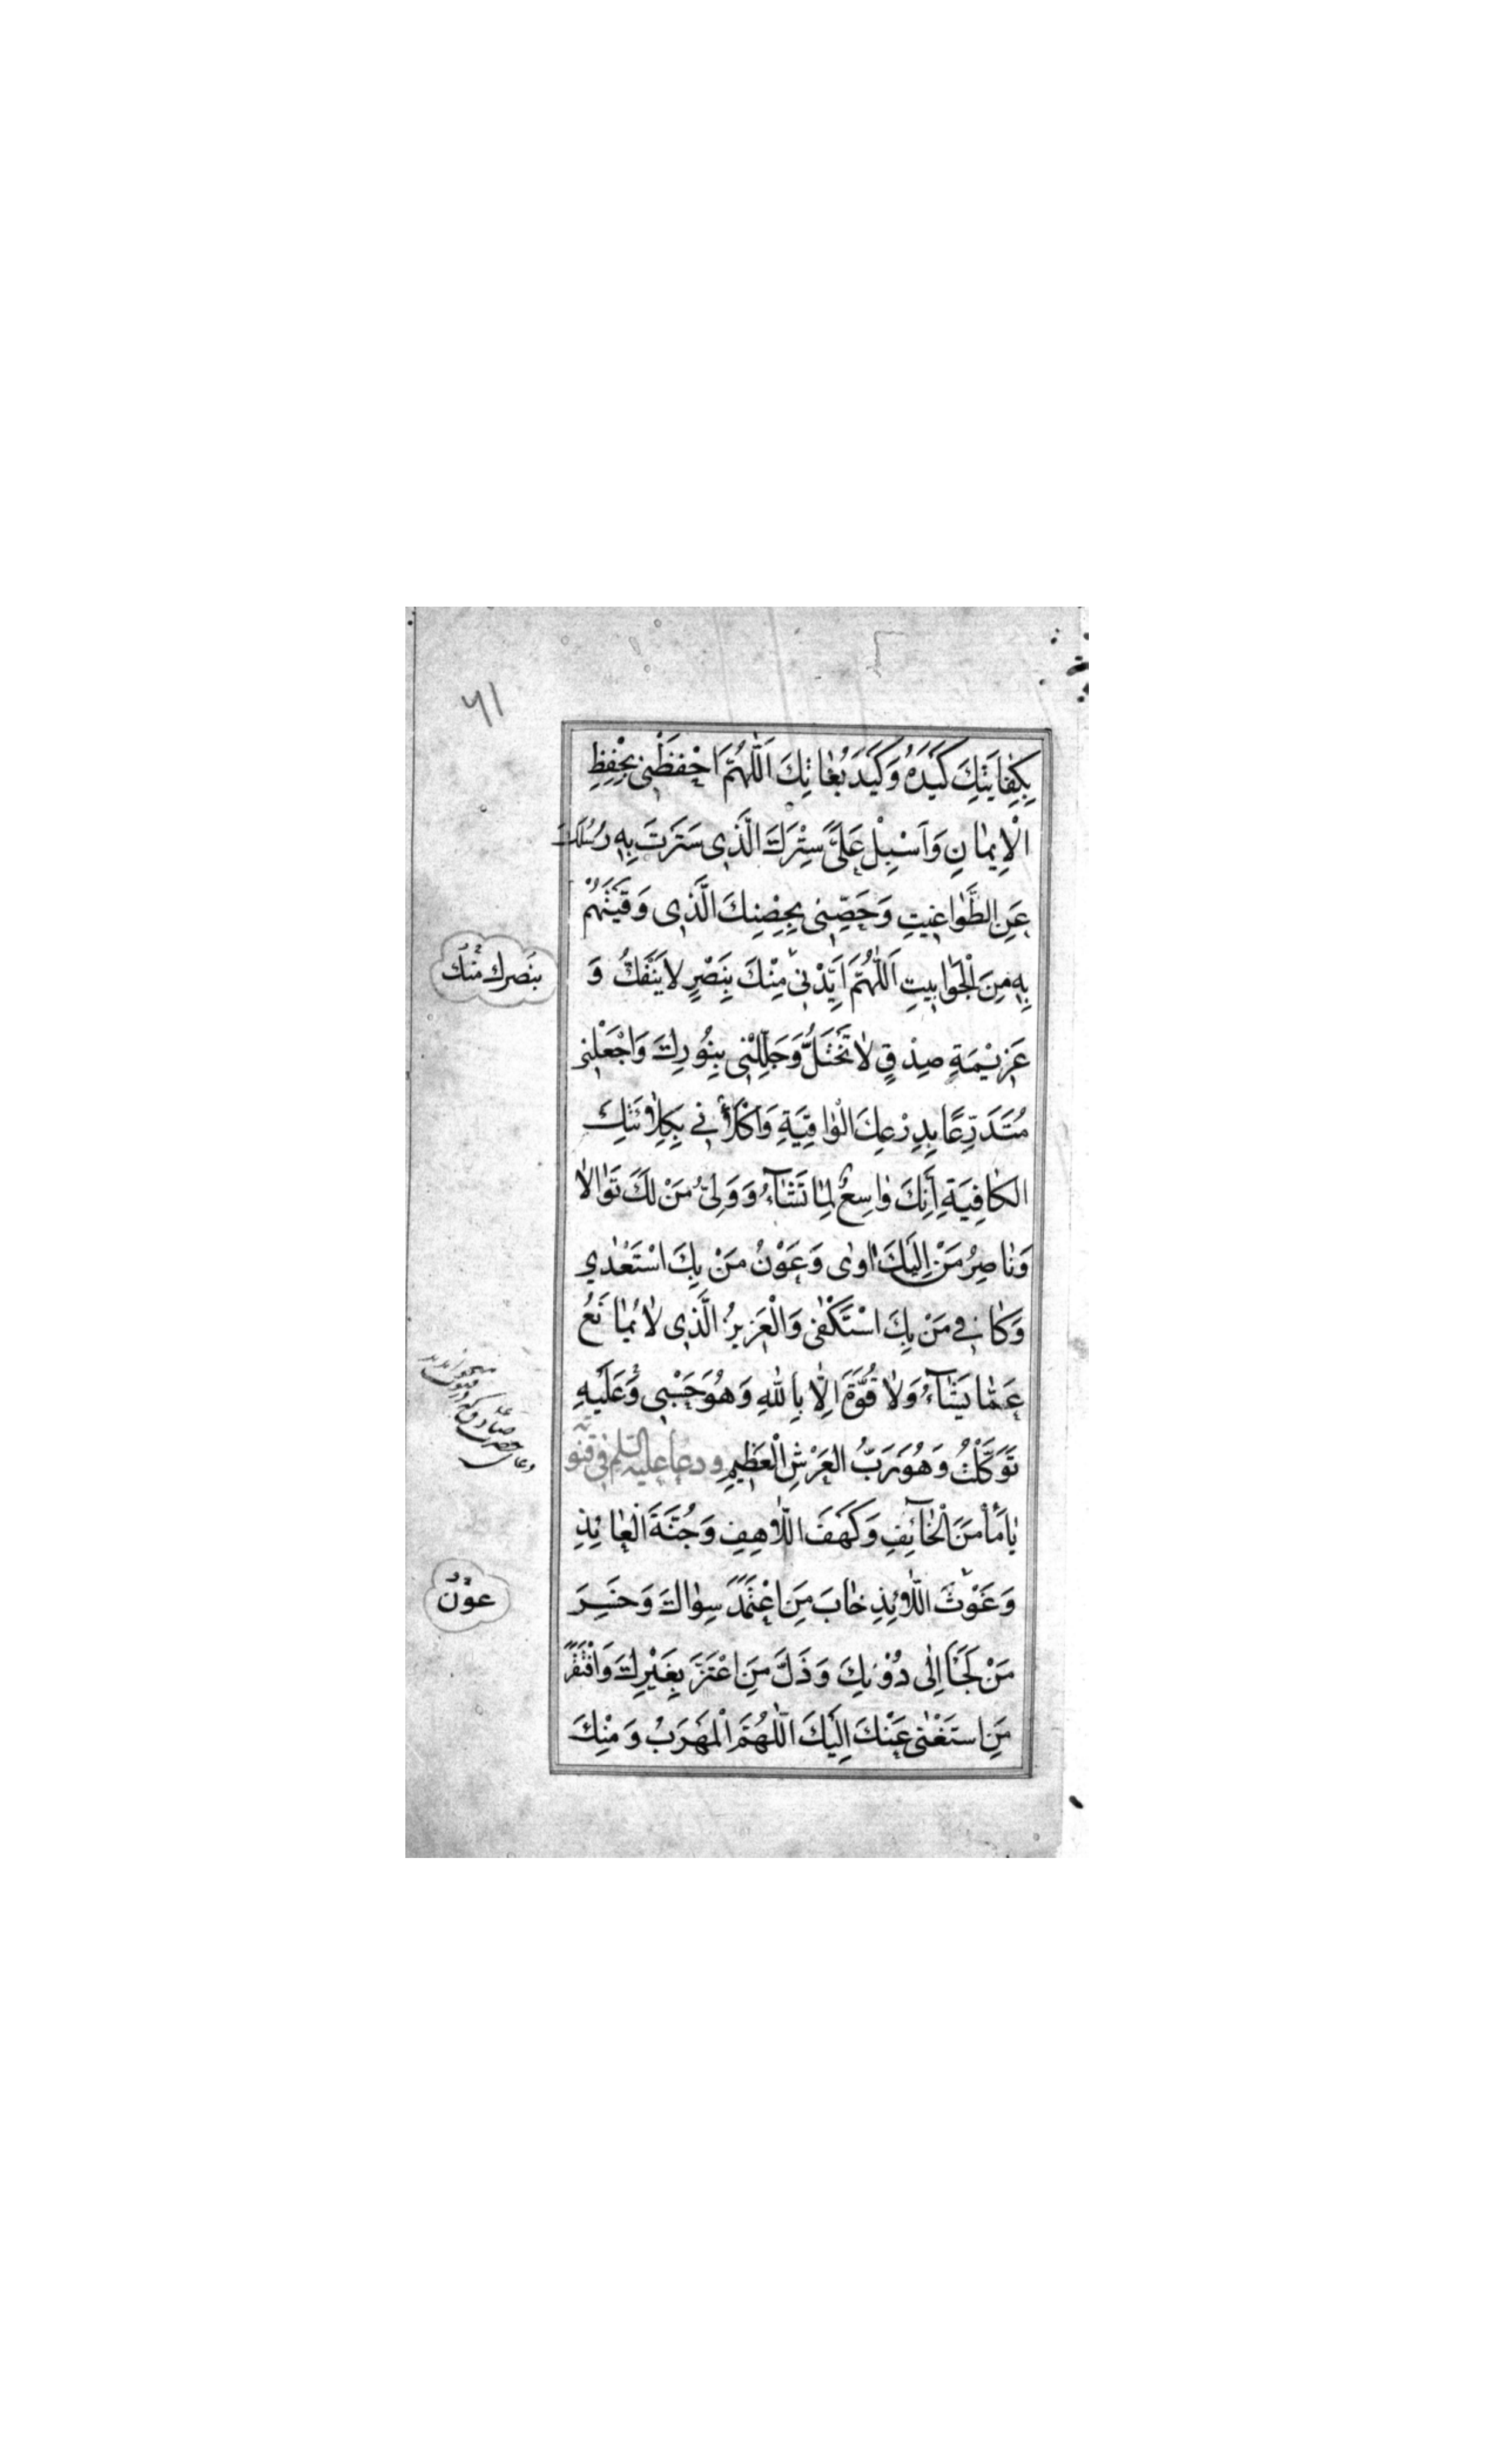 ۶۱
بِكِفٰايَتِكَ كَيْدَهُ وَكَيْدَ بُغٰاتِكَ اَللّٰهُمَّ احْفَظْنِى بِحِفْظِ
الْاِيمٰانِ وَاَسْبِلْ عَلَىَّ سِتْرَكَ الَّذِى سَتَرْتَ بِهِ رُسُلَكَ
عَنِ الطَّوٰاغِيتِ وَحَصِّنِى بِحِصْنِكَ الَّذِى وَقَيْتَهُمْ
بِهِ مِنَ الْجَوٰابِيتِ اَللّٰهُمَّ اَيِّدْنِى مِنْكَ بِنَصْرٍ لاٰ يَنْفَكُّ وَ
بنصرك منك
عَزِيْمَةِ صِدْقٍ لاٰ تُخْتَلُّ وَجَلِّلْنِى بِنُورِكَ وَاجْعَلْنِى
مُتَدَرِّعًا بِدِرْعِكَ الْوٰاقِيَةِ وَاكْلَأْنِى بِكِلاٰئَتِكَ
الكٰافِيَةِ اِنَّكَ وٰاسِعٌ لِمٰا تَشٰآءُ وَوَلِىُّ مَنْ لَكَ تَوٰالاٰ
وَنٰاصِرُ مَنْ اِلَيْكَ اٰوىٰ وَعَوْنُ مَنْ بِكَ اسْتَعْدٰي
وَكٰافِى مَنْ بِكَ اسْتَكْفٰى وَالْعَزِيزُ الَّذِى لاٰ يُمٰانَعُ
عَمّٰا يَشٰآءُ وَلاٰ قُوَّةَ اِلّٰا بِاللهِ وَهُوَ حَسْبِى وَعَلَيْهِ
دعاى حضرت صادق ع كه در قنوت ميخواندند
تَوَكَّلْتُ وَهُوَ رَبُّ العَرْشِ الْعَظِيمِ ودعا عليه السلم فى قنوته
يٰا مَأْمَنَ الْخٰآئِفِ وَكَهْفَ اللّٰاهِفِ وَجُنَّةَ الْعٰائِذِ
وَغَوْثَ اللّٰائِذِ خٰابَ مَنِ اعْتَمَدَ سِوٰاكَ وَخَسِرَ
عون
مَنْ لَجَأَ اِلٰى دُوْنِكَ وَذَلَّ مَنِ اعْتَزَّ بِغَيْرِكَ وَافْتَقَرَ
مَنِ استَغْنٰى عَنْكَ اِلَيْكَ اللّٰهُمَّ الْمَهْرَبُ وَمِنْكَ